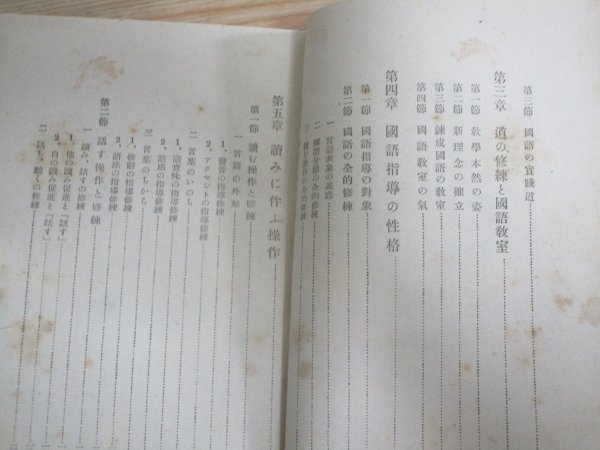 第三節 國語の實踐道
第三章 道の修練と國語敎室
第一節 敎學本然の姿
第二節 新理念の確立
第三節 錬成國語の敎室
第四節 國語敎室の氣
第四章 國語指導の性格
第一節 國語指導の對象
第二節 國語の全的修練
一 言語表象の基底
二 國語分節の全的修練
三 讀む操作の全的修練
第五章 讀みに伴ふ操作
第一節 讀む操作と修練
一 言葉の外形
1、發音の指導修練
2、アクセントの指導修練
二 言葉のいのち
1、語意味の指導修練
2、語感の指導修練
三 言葉のちから
1、修辭の指導修練
2、語法の指導修練
第二節 話す操作と修練
一 讀み、話すの修練
1、他の讀み促進と「話す」
2、自の讀み促進と「話す」
二 話し、聽くの修練